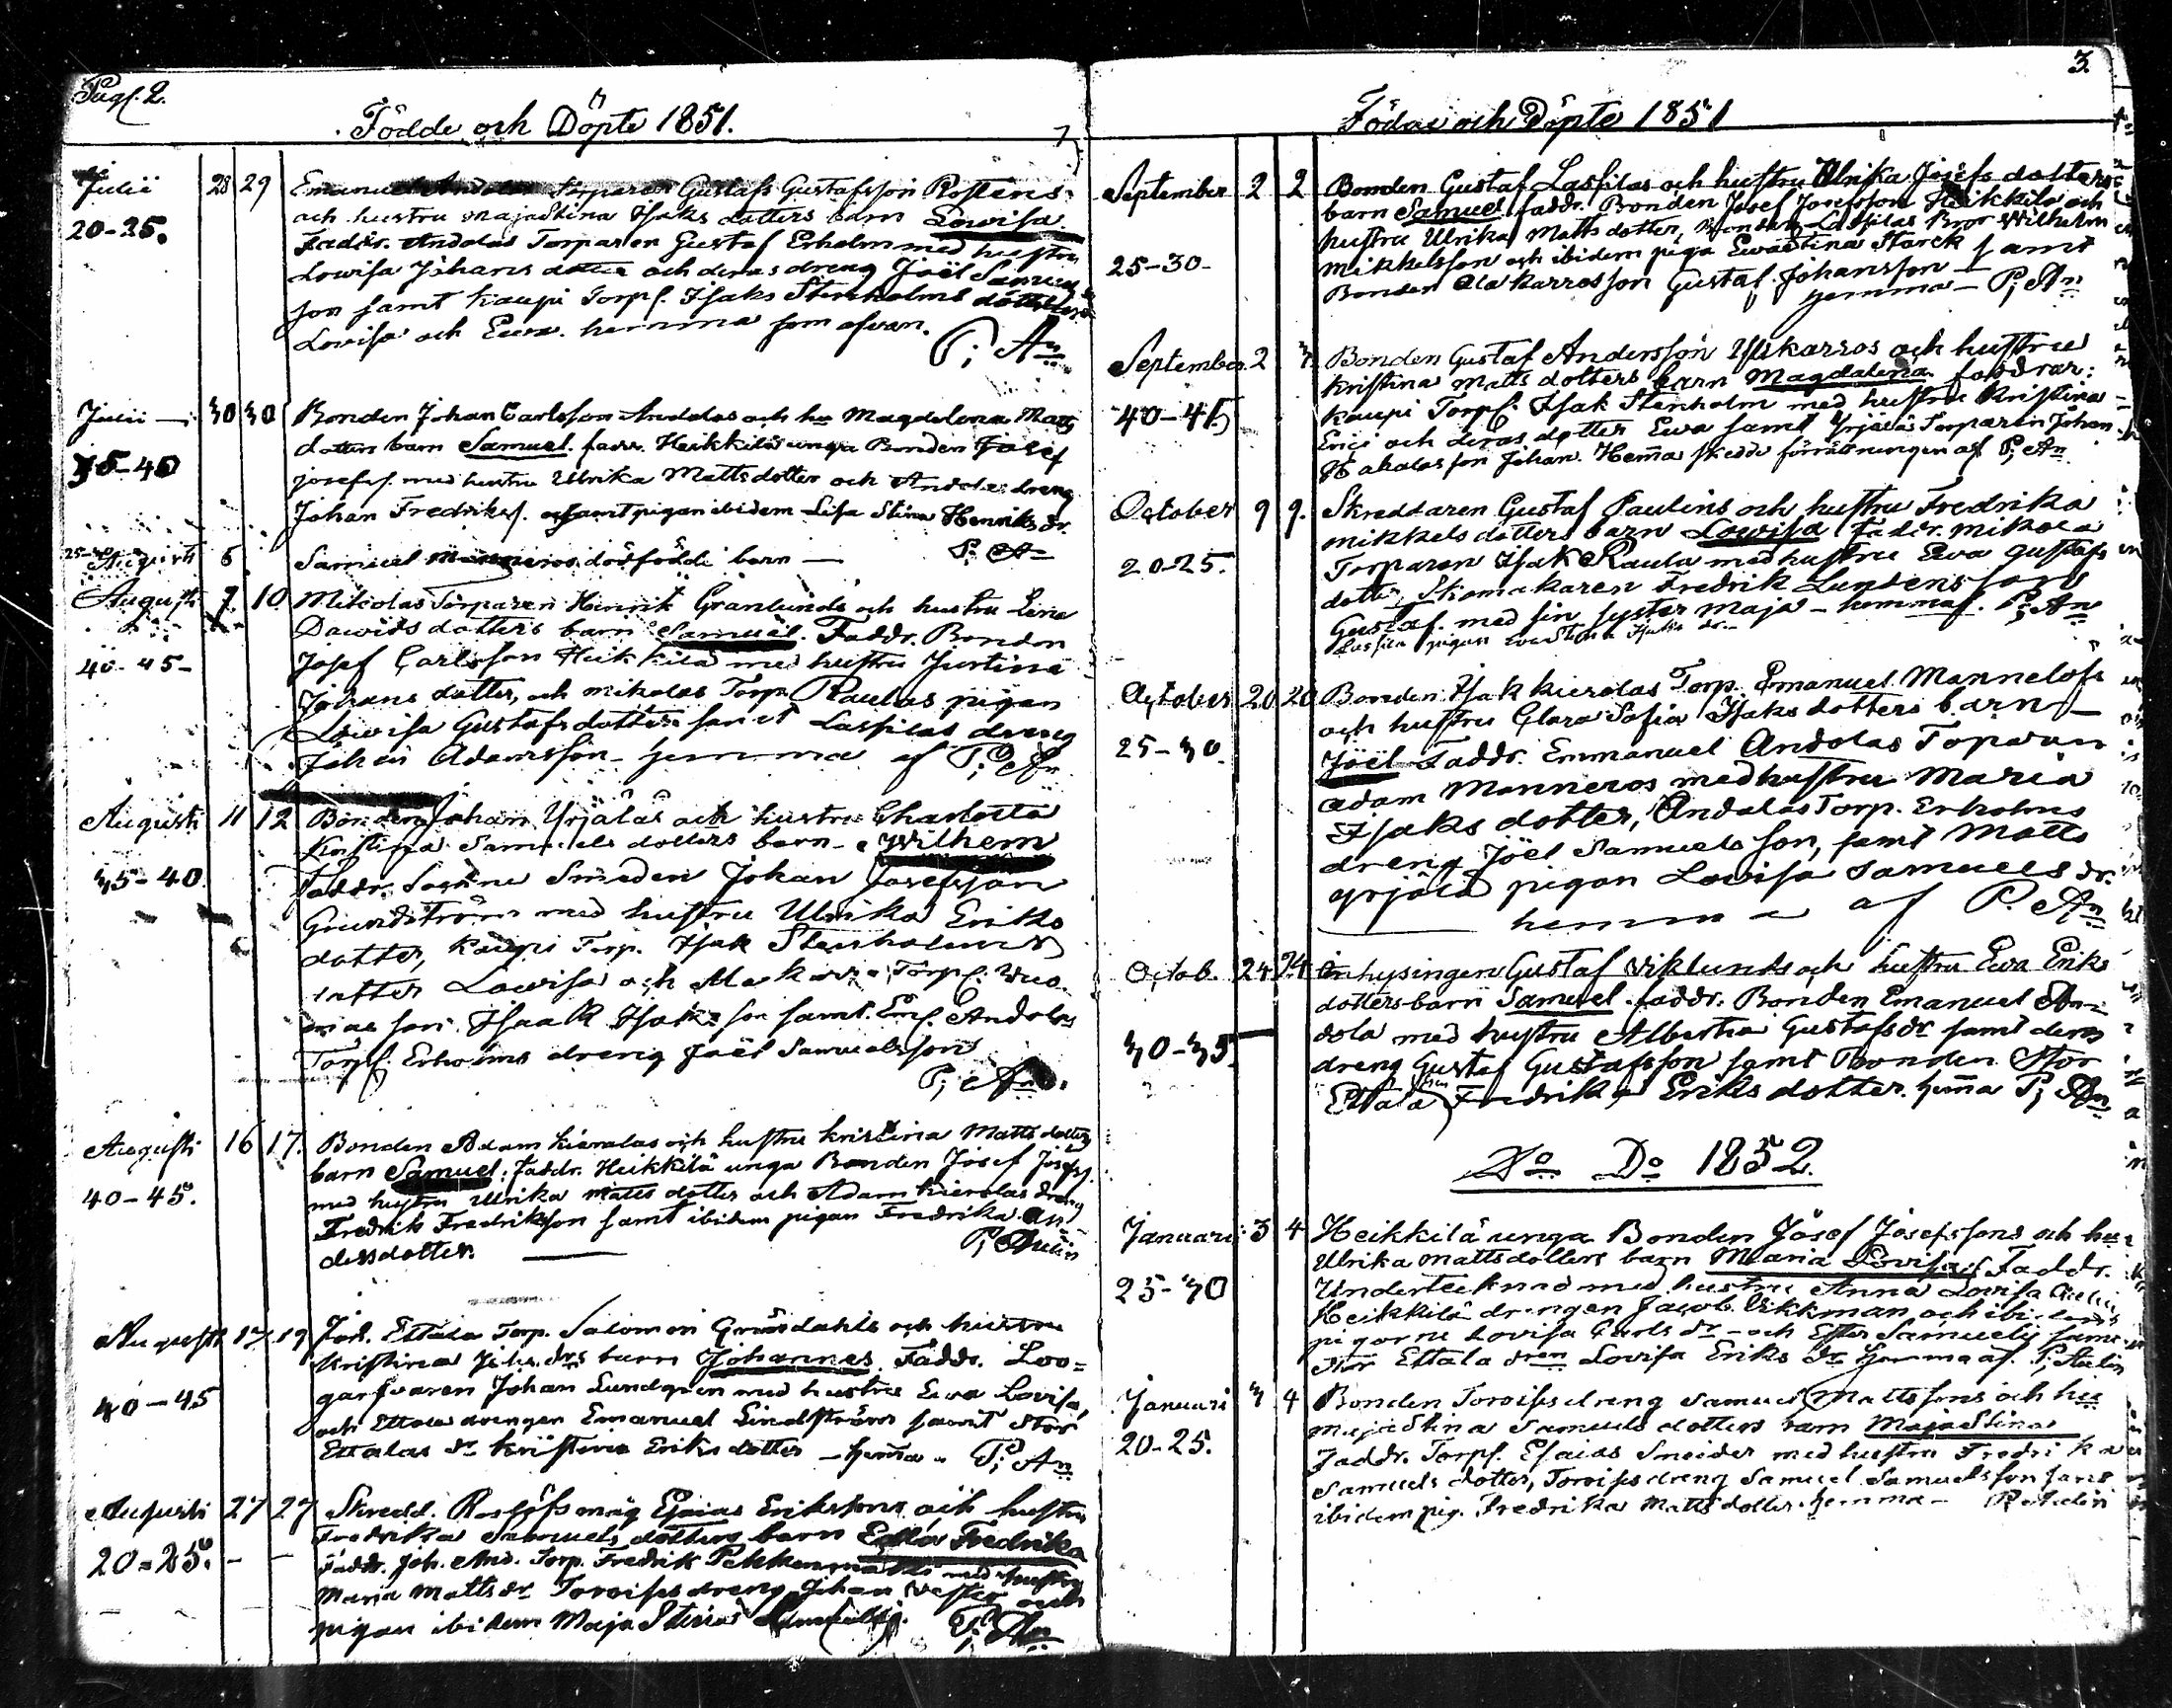 Pag. 2.
Födde och Döpte 1851.
Julii 28 29 Emanuel Andolas Torparen Gustafs Gustafsson Rosténs
och hustru Majastina Isaks dotters barn Lovisa.
20-25. Faddr. Andolas Torparen Gustaf Erholm med hustru
Lovisa Johans dotter och deras dreng Joël Samuels
son samt Kaupi Torp. Isaks Stenholms döttrar
Lovisa och Ewa. hemma som ofvan.
P; An
Julii 30 30 Bonden Johan Carlsson Andolas och hu Magdalena Matts
dotters barn Samuel. fadr. Heikkilä unga Bonden Josef
35-40 josefs. med hustru Ulrika Mattsdotter och Andolas dreng
Johan Fredriks. samt pigan ibidem Lisa Stina Henriks dr.
P. An
Augusti 6 Samuel Manneros dödfödde barn —
Augusti 7 10 Mikolas Torparen Henrik Granlunds och hustru Lena
Dawids dotters barn Samuel. Faddr. Bonden
40-45- Josef Carlsson Heikkilä med hustru Justina
Johans dotter, och mikolas Torp. Raulas pigan
Lovisa Gustafsdotter samt Lassilas dreng
Johan Adamsson - hemma af P; An
Augusti 11 12 Bonden Johan Yrjälas och hustru Charlotta
Kristina Samuels dotters barn - Wilhem
35-40 Faddr. Sockne Smeden Johan Josefsson
Grundström med hustru Ulrika Eriks
dotter, Kaupi Torp. Isak Stenholms
dotter Lovisa och Torp.
son Isaak Isaksson samt Em. Andolas
Torp. Erholms dreng Joël Samuelsson
P; An.
Augusti 16 17. Bonden Adam Kierolas och hustru Kristina Matts dotters
barn Samuel; Faddr. Heikkilä unga Bonden Josef Josefs.
40-45. med hustru Ulrika Matts dotter och Adam Kierolas dreng
Fredrik Fredriksson samt ibidem pigan Fredrika An-
dersdotter. P; Aulin
Augusti 17 19 Joh. Ettala Torp. Salomon Gräsdahls och hustru
Kristina Johs. drs barn Johannes. Faddr. Loo=
garfvaren Johan Lundqvin med hustru Ewa Lovisa,
40-45 och Ettala drengen Emanuel Lindströms samt Stor
Ettalas dr Kristina Eriks dotter - hem̄a - P; An
Augusti 27 27 Skredd. Esaias Erikssons och hustru
Fredrika Samuels dotters barn Edla Fredrika
20=25. Faddr. Joh. And. Torp. Fredrik med hustru
Maria Matts dr Toroiss dreng Johan och
pigan ibidem Maja Stina P; An
3.
Födde och Döpte 1851
September 2 2 Bonden Gustaf Lassilas och hustru Ulrika Josefs dotters
barn Samuel. faddr. Bonden Josef Josefsson Heikkilä och
hustru Ulrika Matts dotter, Bonden Lassilas Bror Wilhelm
25-30- Mikkelsson och ibidem piga Ewastina Starck samt
Bonden Ala karrosson Gustaf Johansson —
hemma — P; An
September 2 3 Bonden Gustaf Andersson Ylikarros och hustru
Kristina Matts dotters barn Magdalena. faddrar:
40-45 Kaupi Torp. Isak Stenholm med hustru Kristina
Erici och deras dotter Ewa samt Yrjälä Torparen Johan
Hakalas son Johan. Hem̄a skedde förrättningen af P; An
October 9 9. Skreddaren Gustaf Paulins och hustru Fredrika
mikkels dotters barn Lovisa Faddr. Mikola
20-25. Torparen Isak Raula med hustru Ewa Gustafs
dotter, Skomakaren Fredrik Lundens son
Gustaf. med sin syster Maja - hemma. P; An
Lassila pigan Ewa Stina Isaks dr.
October 20 20 Bonden Isak Kierolas Torp. Emanuel Mannelofs
och hustru Clara Sofia Isaks dotters barn —
25-30. Joël Faddr. Emmanuel Andolas Toparen
Adam Manneros med hustru Maria
Isaks dotter, Andolas Torp. Erholms
dreng Joel Samuels son, samt Matts
yrjälä pigan Lovisa Samuels dr.
hemma af P. An
Octob. 24 24 Inhysingen Gustaf Viklunds och hustru Ewa Eriks
dotters-barn Samuel. faddr. Bonden Emanuel An=
dola med hustru Albertina Gustafs dr samt deras
30-35 dreng Gustaf Gustafsson samt Bonden Stor
Ettala Fredrika Eriks dotter. hem̄a P; An
Do Do 1852.
Januari 3 4 Heikkilä unga Bonden Josef Josefssons och hu
Ulrika Mattsdotters barn Maria Lovisa; Faddr.
25-30 Undertecknad med hustru Anna Lovisa Aulin
Heikkilä drengen Jacob Vikkman och ibidems
pigorne Lovisa Carls dr - och Ester Samuels samt
Stor Ettala dren Lovisa Eriks dr hemma af. P; Aulin
Januari 3 4 Bonden Toroiss dreng Samuel Mattssons och hu
Majastina Samuels dotters barn Maja Stina
20-25. Faddr. Torp. Esaias Sneider med hustru Fredrika
Samuels dotter, Toroiss dreng Samuel Samuelsson samt
ibidem pig. Fredrika Matts dotter. hemma — P. Aulin